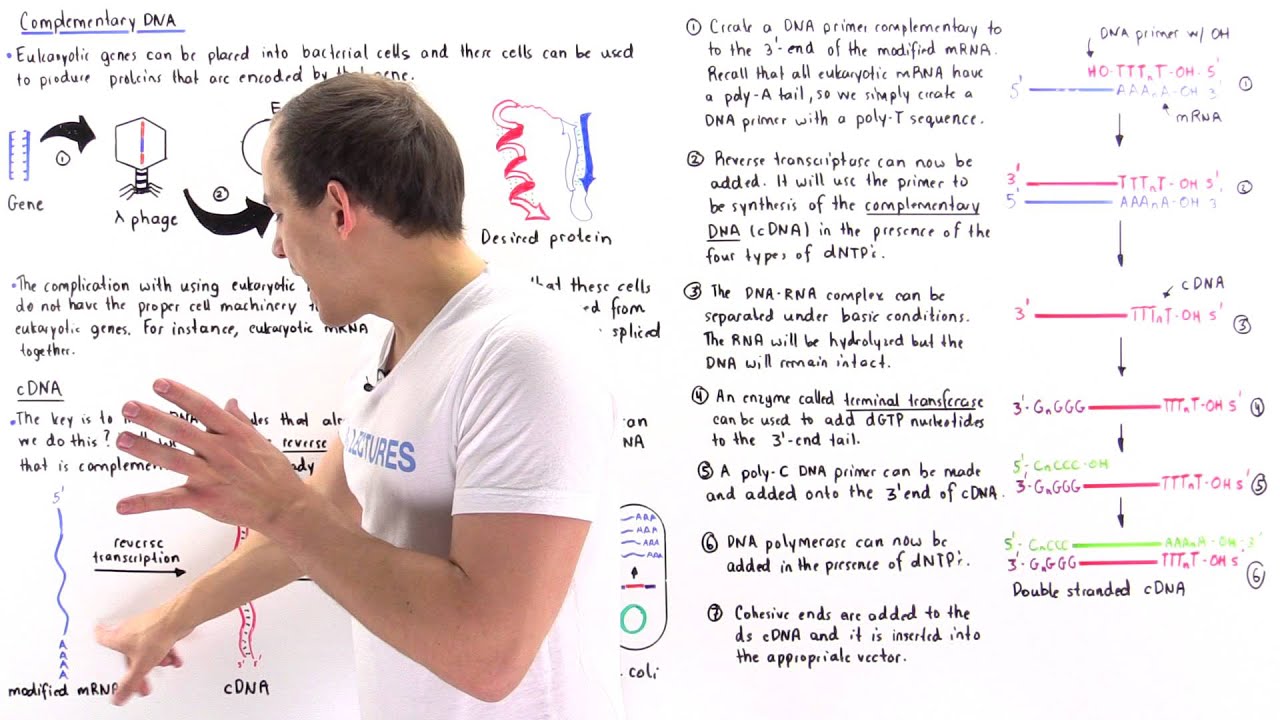 Complementary DNA
• Eukaryotic genes can be placed into bacterial cells and these cells can be used
to produce proteins that are encoded by that gene.
①
Gene
λ phage
②
E
Desired protein
• The complication with using eukaryotic
that these cells
do not have the proper cell machinery
from
eukaryotic genes. For instance, eukaryotic mRNA
spliced
together.
cDNA
• The key is to
DNA
that
we do this?
reverse
that is
5'
reverse
transcription
A
A
A
A
modified mRNA
3' 5'
cDNA
LECTURES
AAA
AAA
AAA
AAA
coli
① Create a DNA primer complementary to
to the 3'-end of the modified mRNA.
Recall that all eukaryotic mRNA have
a poly-A tail, so we simply create a
DNA primer with a poly-T sequence.
② Reverse transcriptase can now be
added. It will use the primer to
be synthesis of the complementary
DNA (cDNA) in the presence of the
four types of dNTP's.
③ The DNA-RNA complex can be
separated under basic conditions.
The RNA will be hydrolyzed but the
DNA will remain intact.
④ An enzyme called terminal transferase
can be used to add dGTP nucleotides
to the 3'-end tail.
⑤ A poly-C DNA primer can be made
and added onto the 3' end of cDNA.
⑥ DNA polymerase can now be
added in the presence of dNTP's.
⑦ Cohesive ends are added to the
ds cDNA and it is inserted into
the appropriate vector.
DNA primer w/ OH
HO-TTTnT-OH-5'
5' AAAnA-OH 3' ①
mRNA
3' TTTnT-OH 5'
5' AAAnA-OH 3' ②
cDNA
3' TTTnT-OH 5' ③
3'-GnGGG TTTnT-OH 5' ④
5'-CnCCC-OH
3'-GnGGG TTTnT-OH 5' ⑤
5'-CnCCC AAAnA-OH-3'
3'-GnGGG TTTnT-OH 5' ⑥
Double stranded cDNA